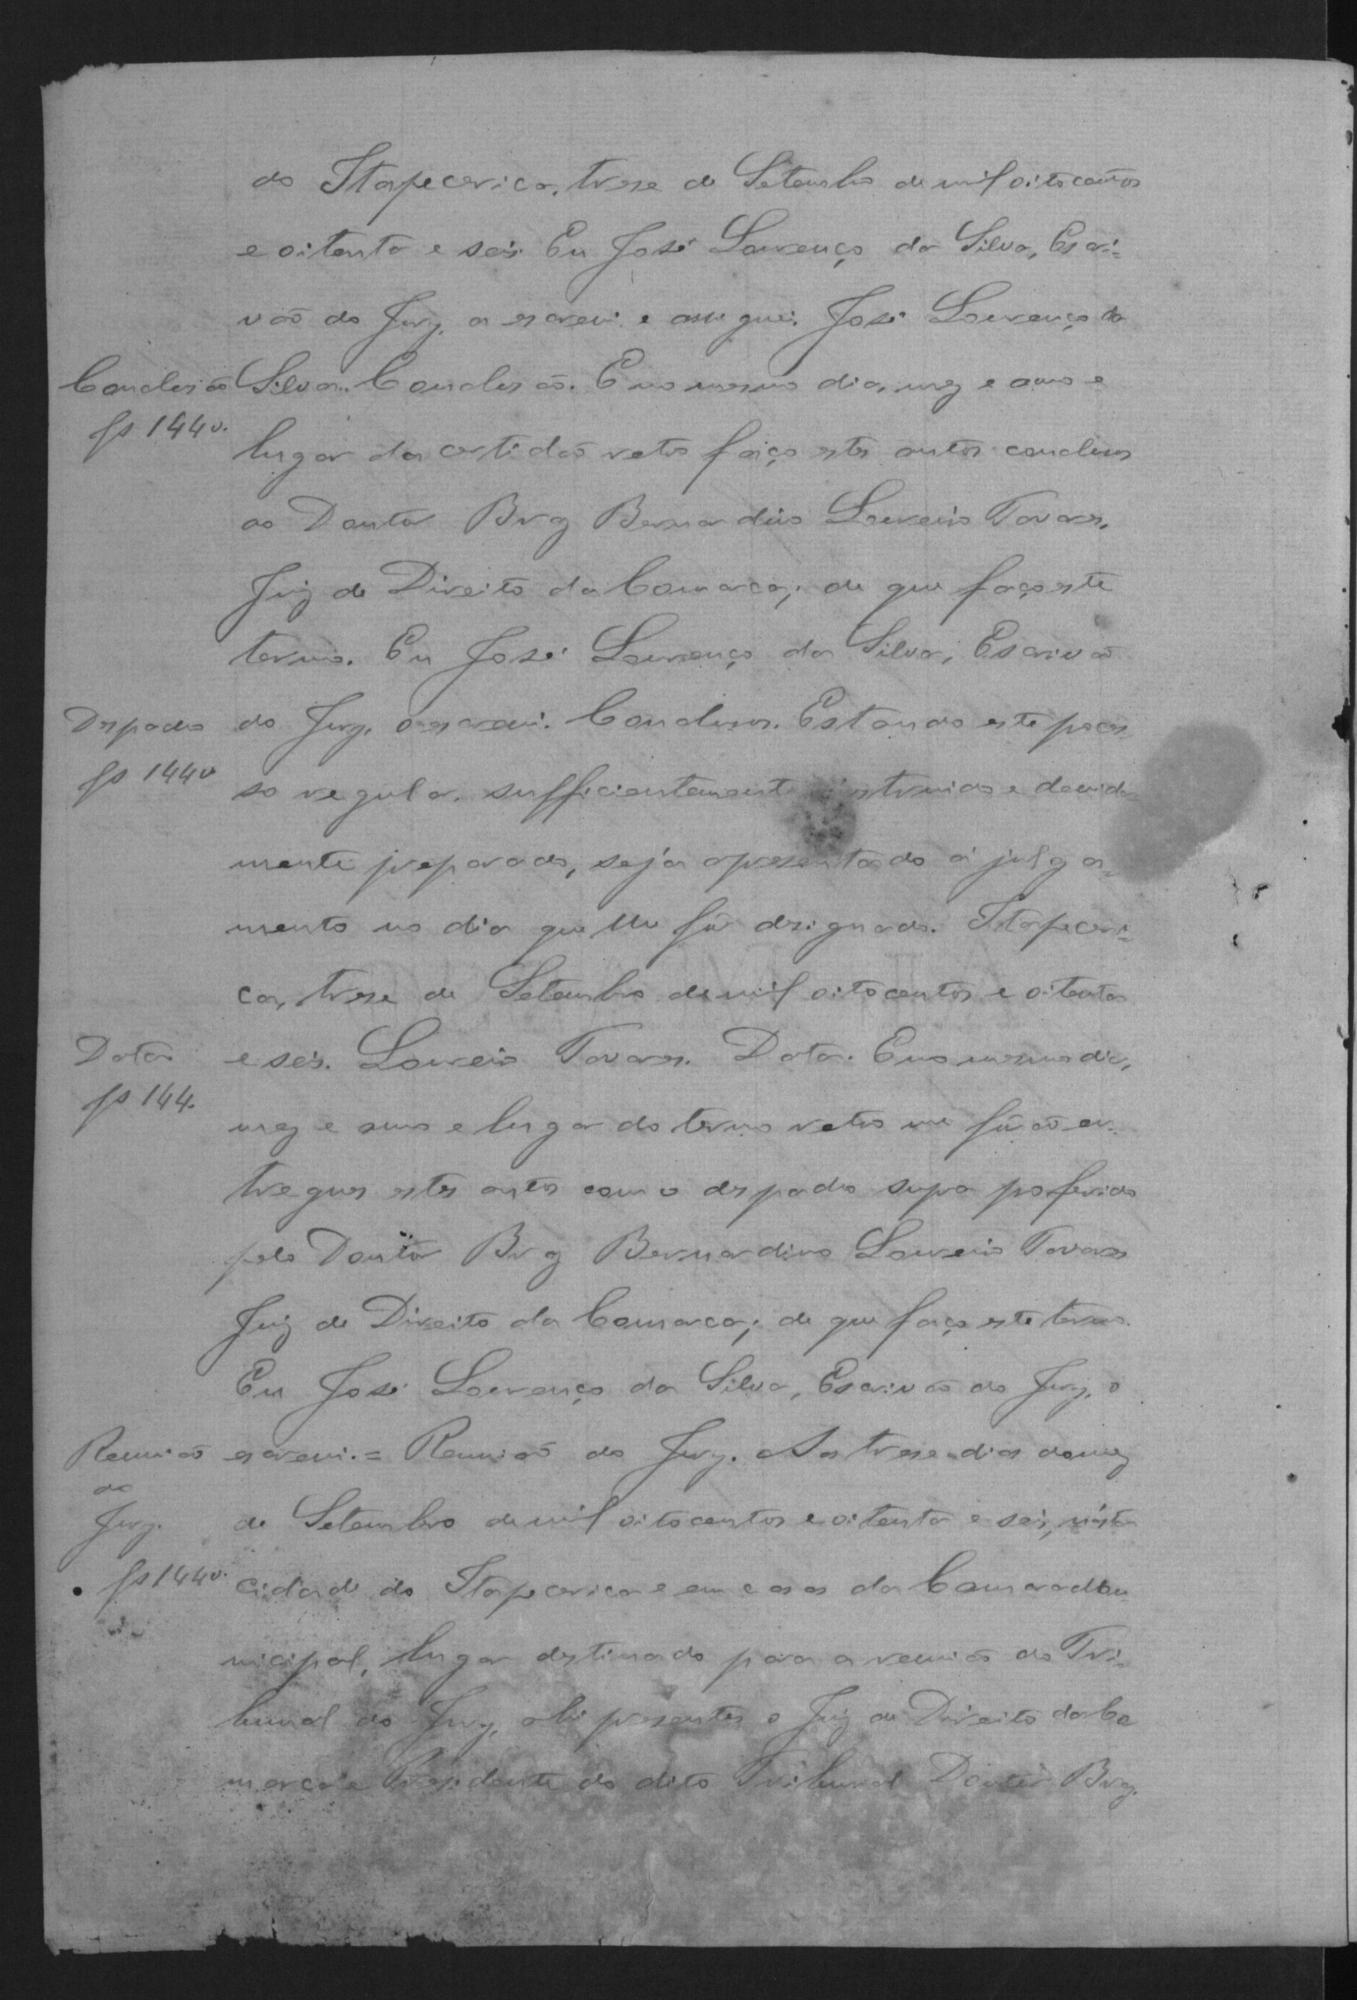 do Itapecerica, trese de Setembro de mil oitocentos
e oitenta e seis. Eu José Lourenço da Silva, Escri-
vão do Jury, o escrevi e assignei. José Lourenço da
Conclusão Silva. Conclusão. E no mesmo dia, mez e anno e
fs 144v.
lugar da certidão retro faço estes autos conclusos
ao Doutor Braz Bernardino Loureiro Tavares,
Juiz de Direito da Comarca; de que faço este
termo. Eu José Lourenço da Silva, Escrivão
Despacho do Jury, o escrevi. Conclusos. Estando este proces-
fs 144v so regular, sufficientemente instruido e devida
mente preparado, seja apresentado á julga-
mento no dia que lhe fôr designado. Itapeceri-
ca, trese de Setembro de mil oitocentos e oitenta
Data e seis. Loureiro Tavares. Data. E no mesmo dia,
fs 144.
mez e anno e lugar do termo retro me fôrão en-
tregues estes autos com o despacho supra proferido
pelo Doutor Braz Bernardino Loureiro Tavares
Juiz de Direito da Comarca; de que faço este termo.
Eu José Lourenço da Silva, Escrivão do Jury, o
Reunião escrevi. = Reunião do Jury. Aos trese dias do mez
do
Jury. de Setembro de mil oitocentos e oitenta e seis, n'esta
fs 144v. cidade do Itapecerica e em casa da Camara Mu
nicipal, lugar destinado para a reunião do Tri-
bunal do Jury, ahi presentes o Juiz de Direito da Co
marca e Presidente do dito Tribunal Doutor Braz